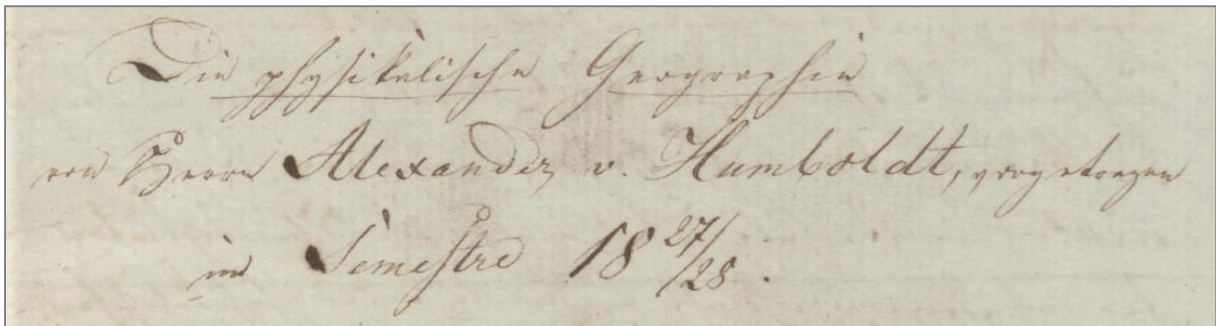 Die physikalische Geographie
von Herrn Alexander v. Humboldt, vorgetragen
im Semestre 18 27/28.